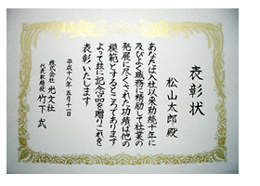 表彰状
松山太郎殿
あなたは入社以来勤続十年に
及びよく職務に精励して社業の
発展に尽くされた功績は他の
模範とするところであります
よって茲に記念品を贈りこれを
表彰いたします
平成十八年五月十一日
株式会社 光文社
代表取締役 竹下 武